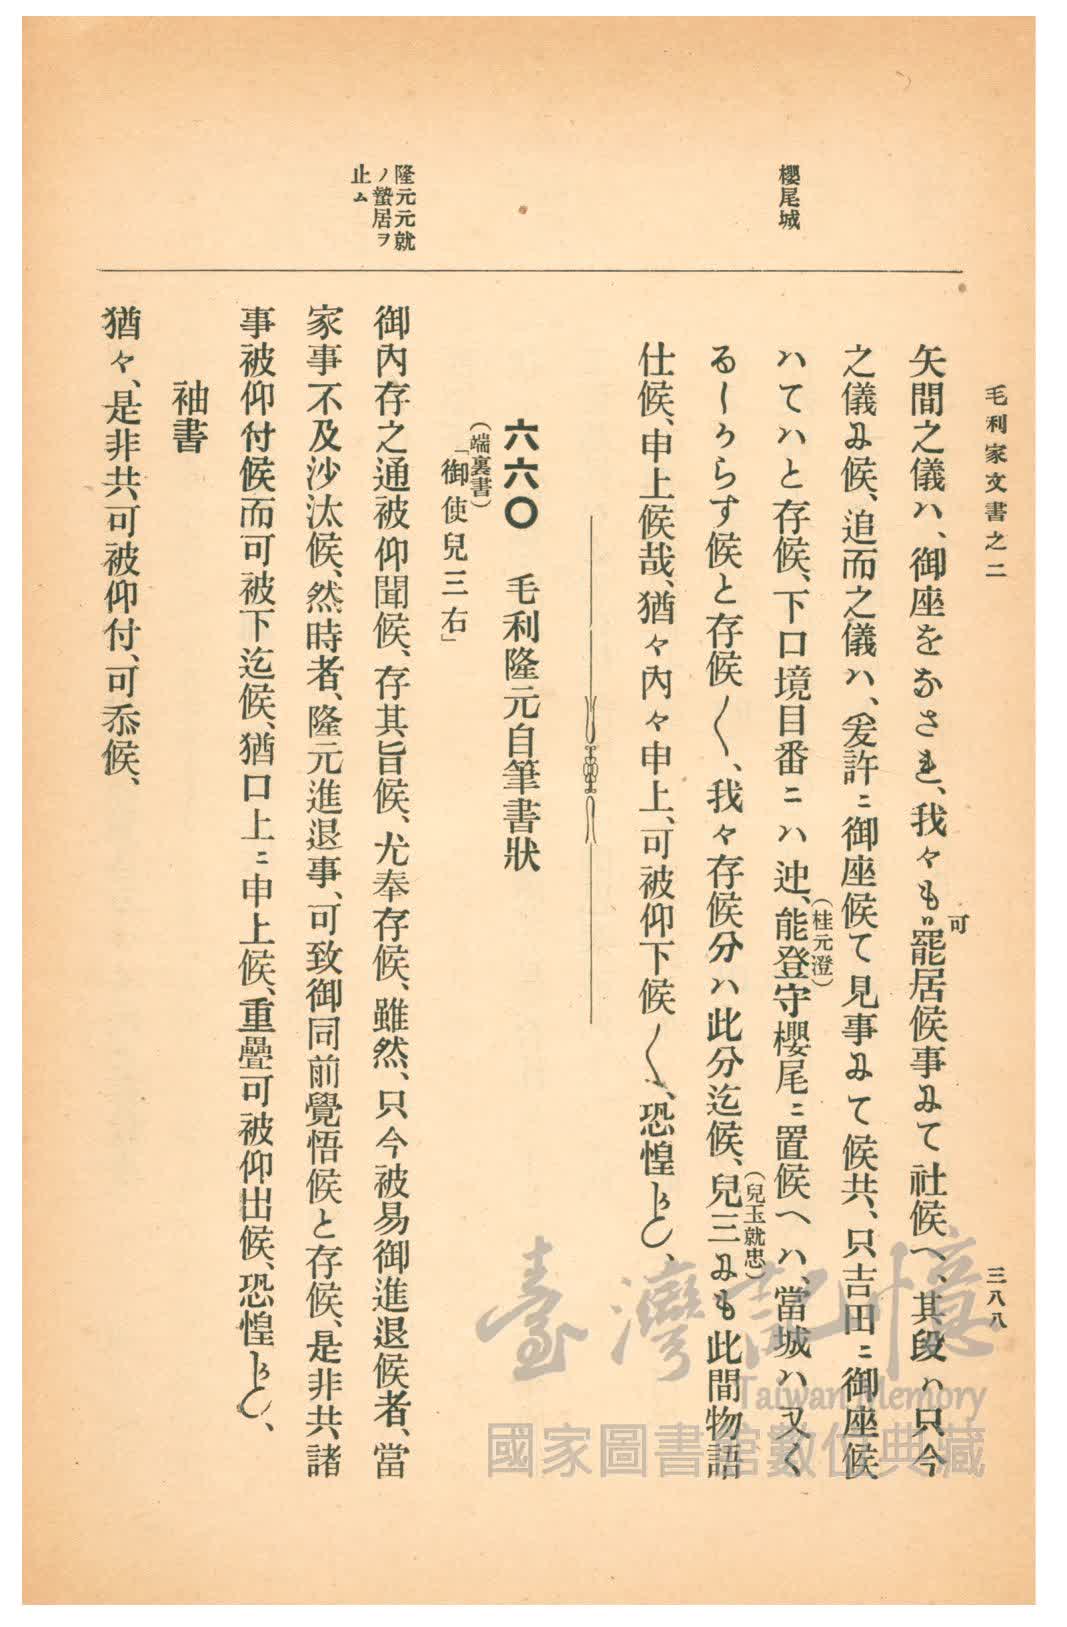 毛利家文書之二
三八八
櫻尾城
矢間之儀ハ、御座をなされ、我々も罷居候事ニて社候へ、其段ハ只今
可
之儀ニ候、追而之儀ハ、爰許ニ御座候て見事ニて候共、只吉田ニ御座候
ハてハと存候、下口境目番ニハ迚、能登守櫻尾ニ置候ヘハ、當城ハ又く
(桂元澄)
るしからす候と存候〱、我々存候分ハ此分迄候、兒三ニも此間物語
(兒玉就忠)
仕候、申上候哉、猶々內々申上、可被仰下候〱、恐惶かしく、
六六〇 毛利隆元自筆書狀
(端裏書)
「御使兒三右」
隆元元就
ノ蟄居ヲ
止ム
御內存之通被仰聞候、存其旨候、尤奉存候、雖然、只今被易御進退候者、當
家事不及沙汰候、然時者、隆元進退事、可致御同前覺悟候と存候、是非共諸
事被仰付候而可被下迄候、猶口上ニ申上候、重疊可被仰出候、恐惶かしく、
袖書
猶々、是非共可被仰付、可忝候、
臺灣記憶
Taiwan Memory
國家圖書館數位典藏